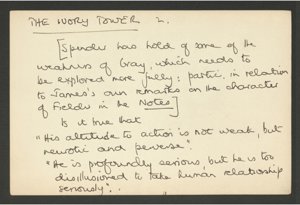 THE IVORY TOWER 2.
[Spender has hold of some of the
weakness of Gray, which needs to
be explored more fully: partic. in relation
to James's own remarks on the character
of Fielder in the Notes]
Is it true that
"His attitude to action is not weak, but
neurotic and perverse".
"He is profoundly serious, but he is too
disillusioned to take human relationship
seriously".